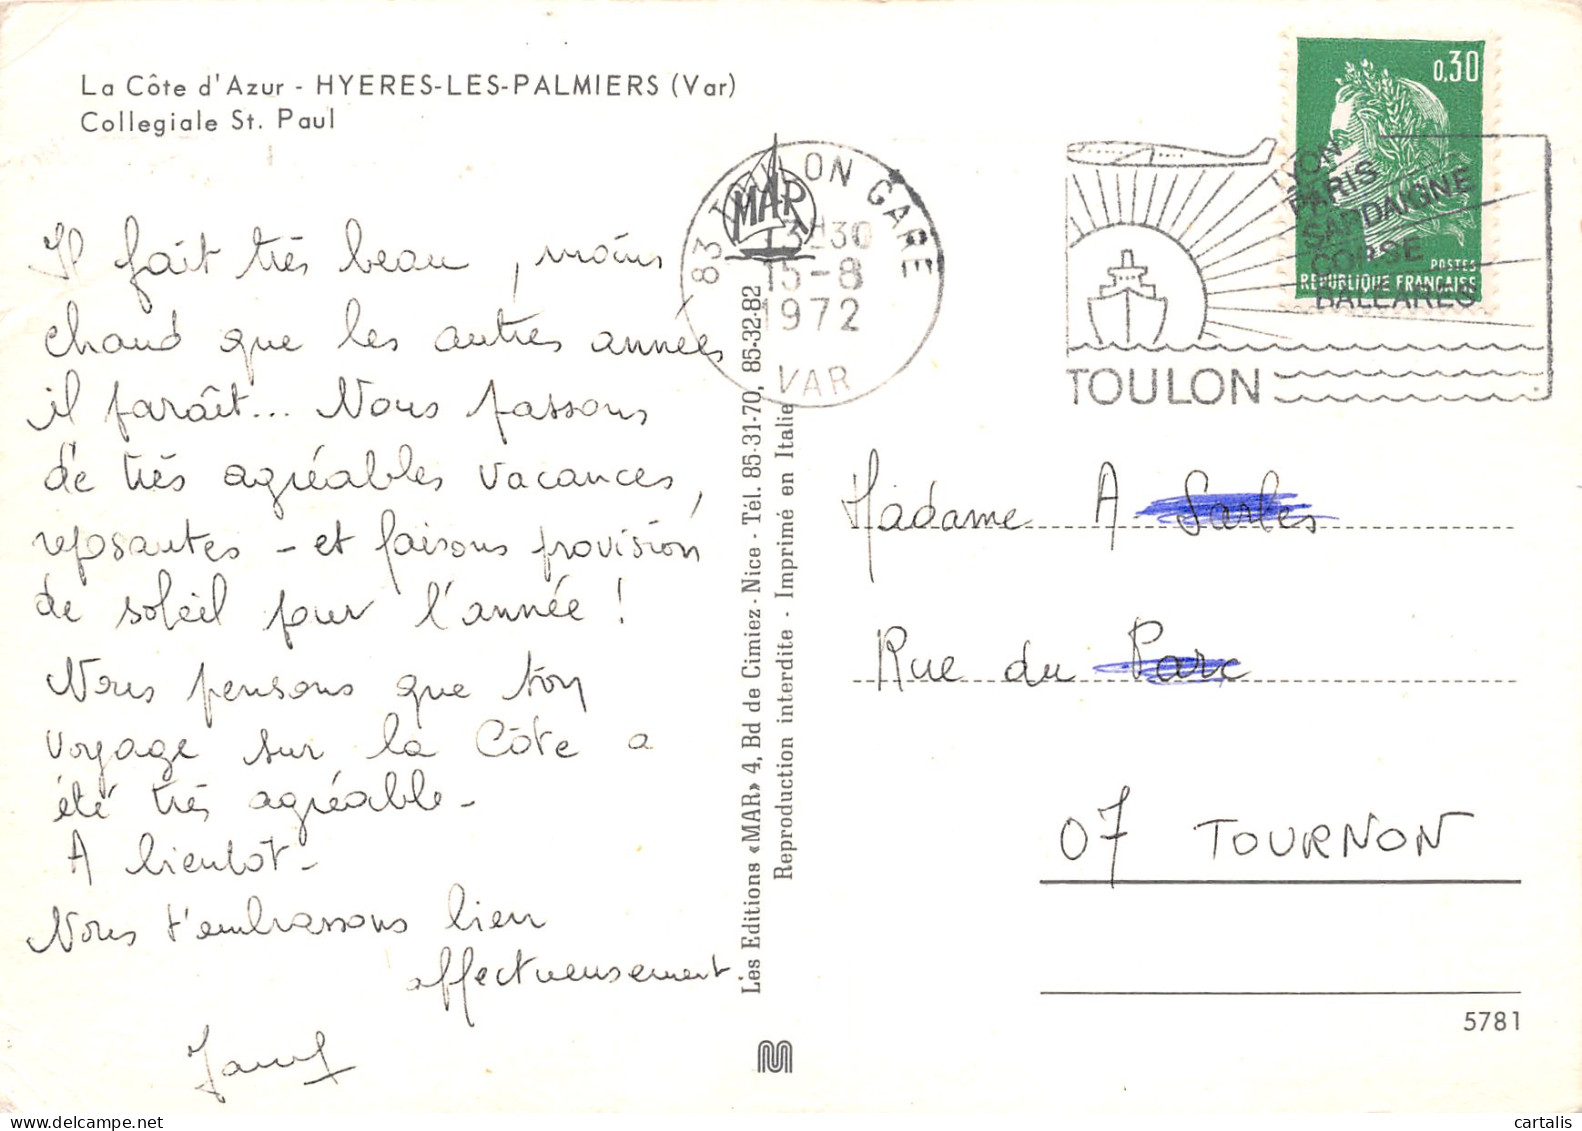 La Côte d'Azur - HYERES-LES-PALMIERS (Var)
Collegiale St. Paul
Il fait très beau, moins
chaud que les autres années
il paraît... Nous passons
de très agréables vacances,
reposantes - et faisons provision
de soleil pour l'année !
Nous pensons que ton
voyage sur la Côte a
été très agréable -
A bientôt -
Nous t'embrassons bien
affectueusement.
Les Editions «MAR» 4, Bd de Cimiez - Nice - Tél. 85-31-70, 85-32-82
Reproduction interdite - Imprimé en Italie
MAR
83 TOULON GARE
13H30
15-8
1972
VAR
LYON
PARIS
SARDAIGNE
CORSE
BALEARES
TOULON
0,30
POSTES
REPUBLIQUE FRANÇAISE
Madame A Sarles
Rue du Parc
07 TOURNON
5781
cartalis
delcampe.net